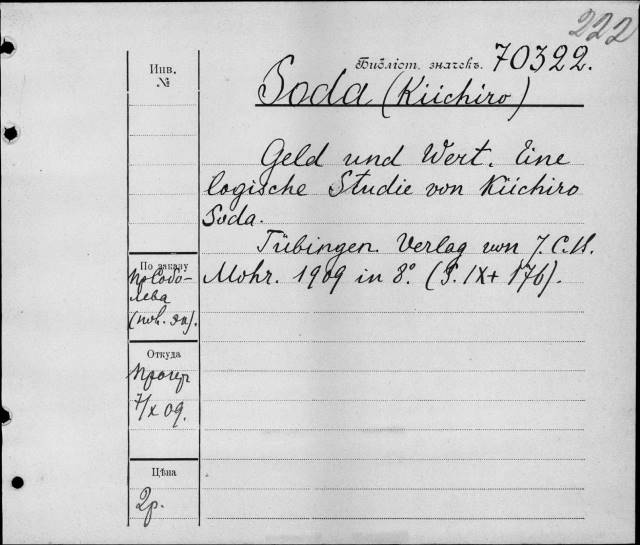 222
Инв. №
Библіот. значекъ. 70322.
Soda (Kiichiro)
Geld und Wert. Eine
logische Studie von Kiichiro
Soda.
Tübingen. Verlag von J. C. B.
Mohr. 1909 in 8°. (S. IX + 176).
По заказу
пр. Собо-
лева
Откуда
7/X 09.
Цѣна
2р.